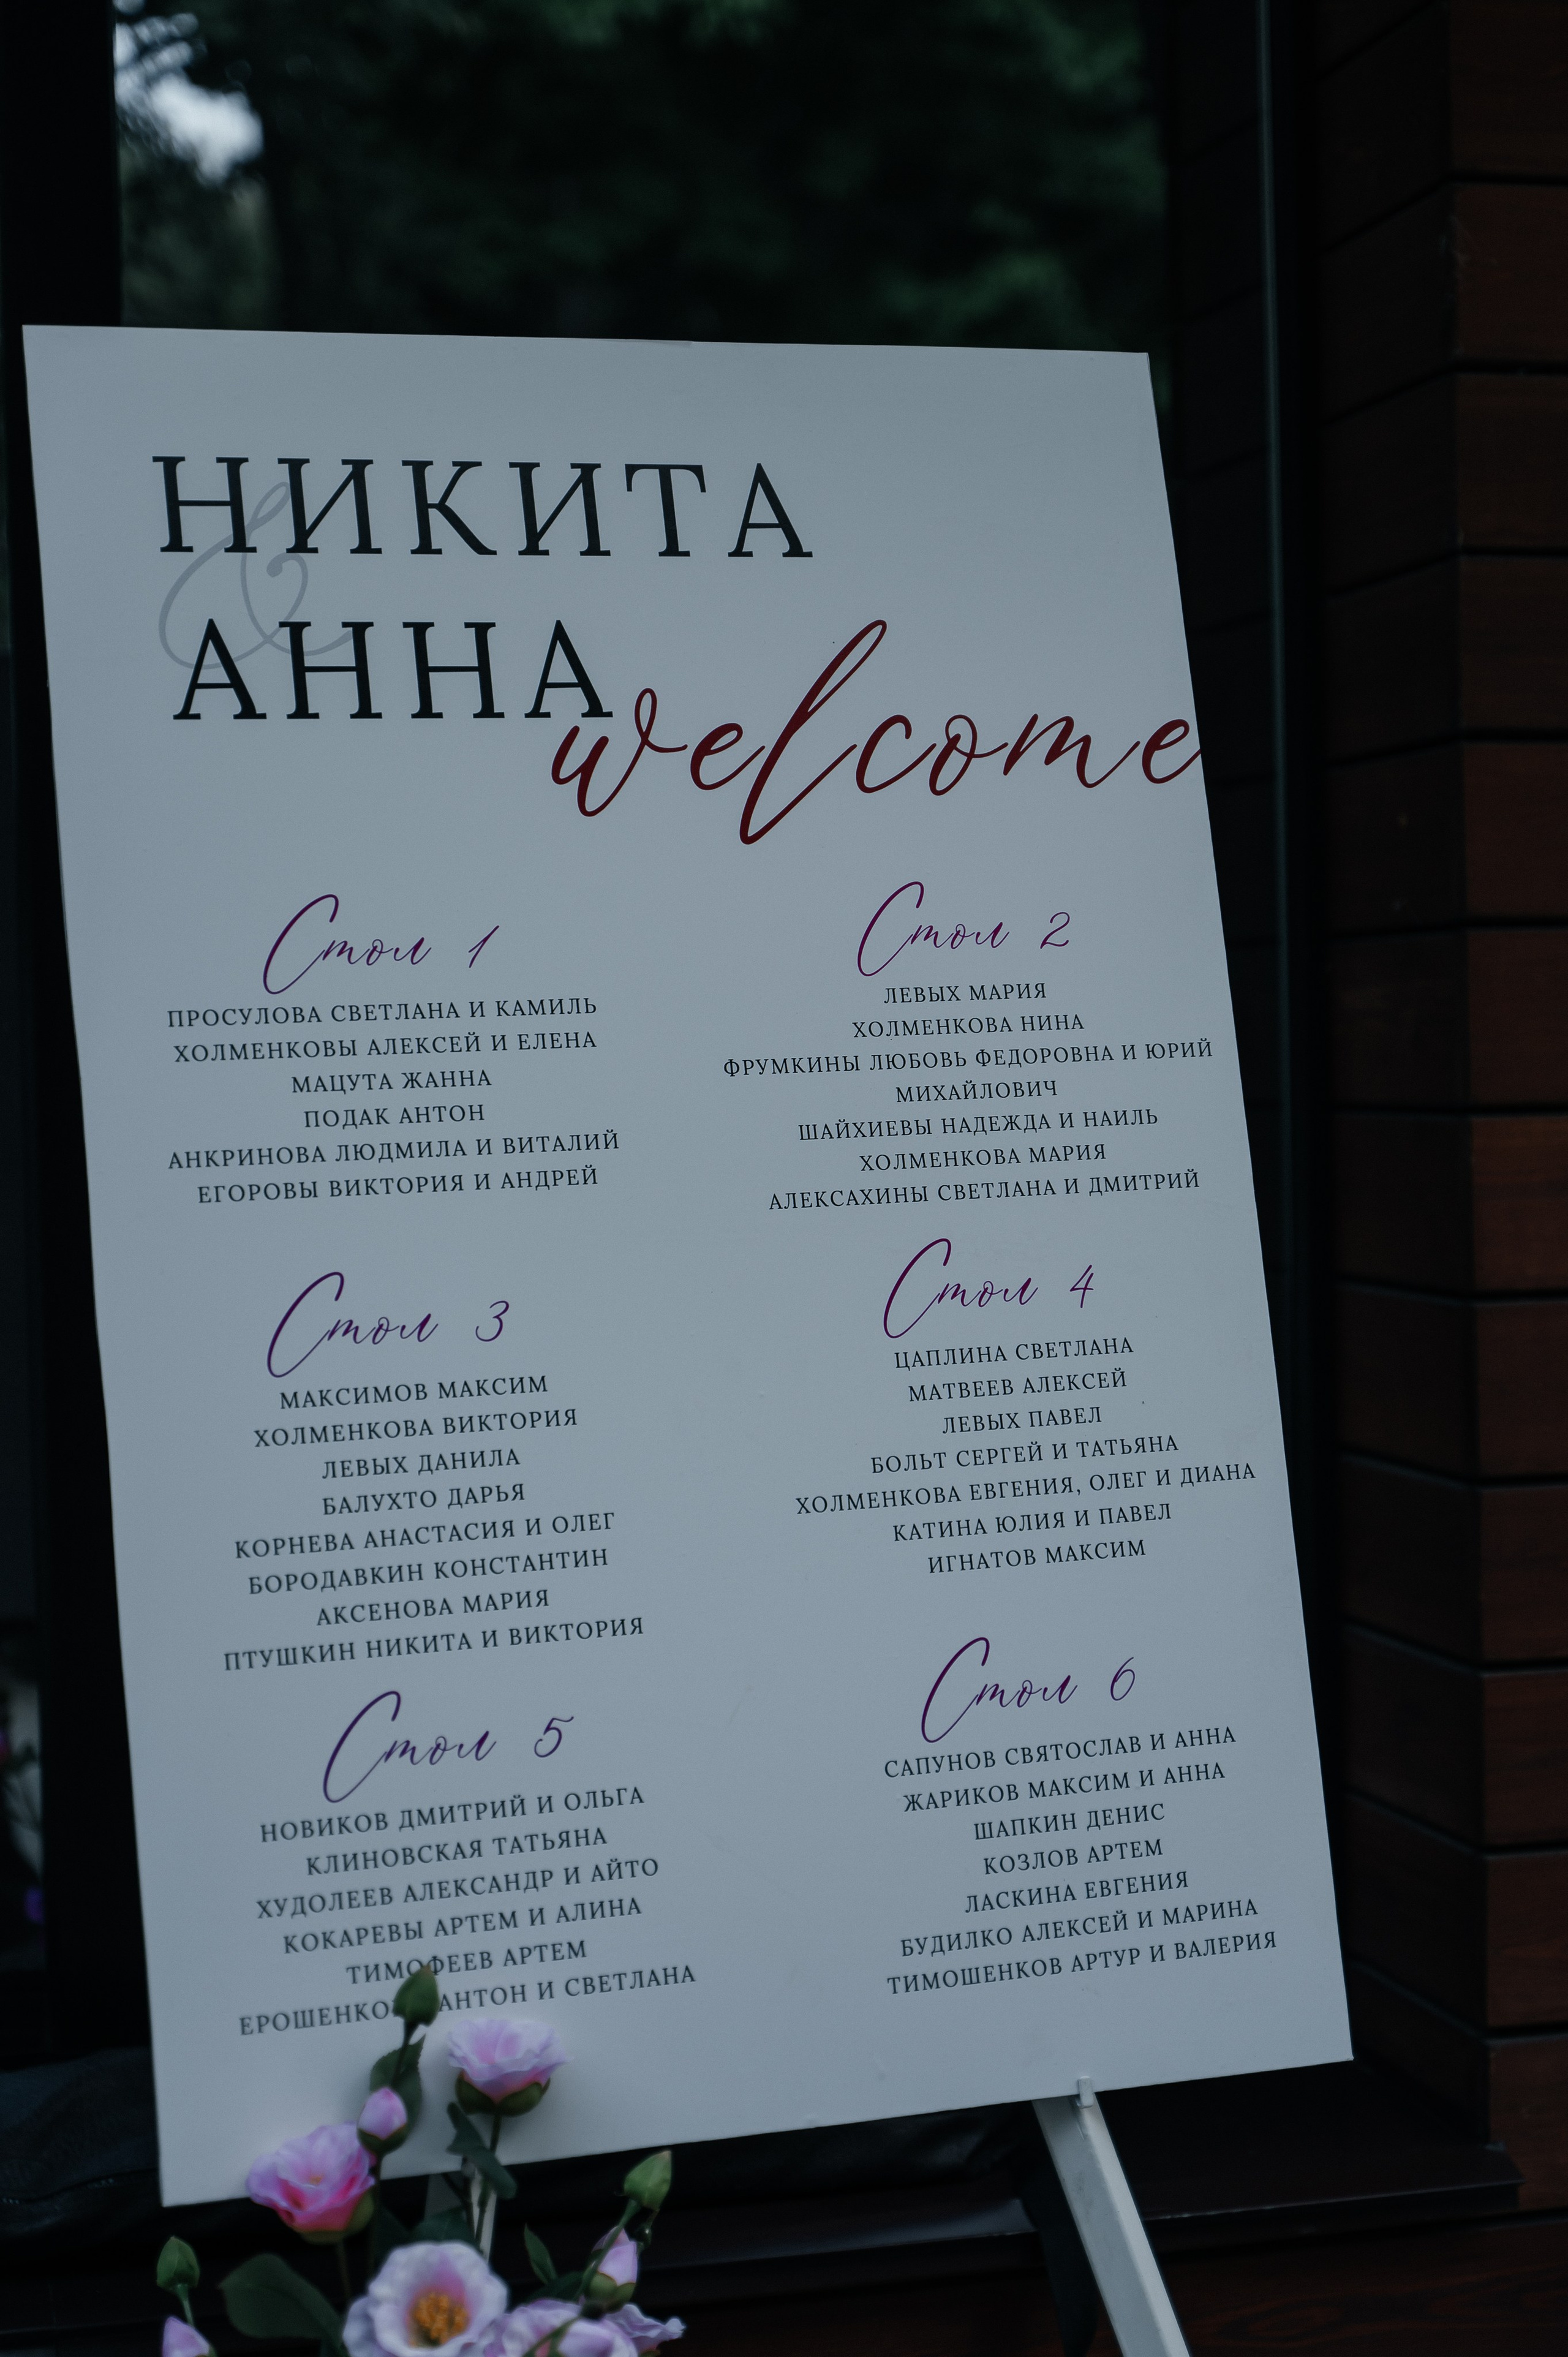 НИКИТА
&
АННА
welcome
Стол 1
ПРОСУЛОВА СВЕТЛАНА И КАМИЛЬ
ХОЛМЕНКОВЫ АЛЕКСЕЙ И ЕЛЕНА
МАЦУТА ЖАННА
ПОДАК АНТОН
АНКРИНОВА ЛЮДМИЛА И ВИТАЛИЙ
ЕГОРОВЫ ВИКТОРИЯ И АНДРЕЙ
Стол 2
ЛЕВЫХ МАРИЯ
ХОЛМЕНКОВА НИНА
ФРУМКИНЫ ЛЮБОВЬ ФЕДОРОВНА И ЮРИЙ
МИХАЙЛОВИЧ
ШАЙХИЕВЫ НАДЕЖДА И НАИЛЬ
ХОЛМЕНКОВА МАРИЯ
АЛЕКСАХИНЫ СВЕТЛАНА И ДМИТРИЙ
Стол 3
МАКСИМОВ МАКСИМ
ХОЛМЕНКОВА ВИКТОРИЯ
ЛЕВЫХ ДАНИЛА
БАЛУХТО ДАРЬЯ
КОРНЕВА АНАСТАСИЯ И ОЛЕГ
БОРОДАВКИН КОНСТАНТИН
АКСЕНОВА МАРИЯ
ПТУШКИН НИКИТА И ВИКТОРИЯ
Стол 4
ЦАПЛИНА СВЕТЛАНА
МАТВЕЕВ АЛЕКСЕЙ
ЛЕВЫХ ПАВЕЛ
БОЛЬТ СЕРГЕЙ И ТАТЬЯНА
ХОЛМЕНКОВА ЕВГЕНИЯ, ОЛЕГ И ДИАНА
КАТИНА ЮЛИЯ И ПАВЕЛ
ИГНАТОВ МАКСИМ
Стол 5
НОВИКОВ ДМИТРИЙ И ОЛЬГА
КЛИНОВСКАЯ ТАТЬЯНА
ХУДОЛЕЕВ АЛЕКСАНДР И АЙТО
КОКАРЕВЫ АРТЕМ И АЛИНА
ТИМОФЕЕВ АРТЕМ
АНТОН И СВЕТЛАНА
Стол 6
САПУНОВ СВЯТОСЛАВ И АННА
ЖАРИКОВ МАКСИМ И АННА
ШАПКИН ДЕНИС
КОЗЛОВ АРТЕМ
ЛАСКИНА ЕВГЕНИЯ
БУДИЛКО АЛЕКСЕЙ И МАРИНА
ТИМОШЕНКОВ АРТУР И ВАЛЕРИЯ